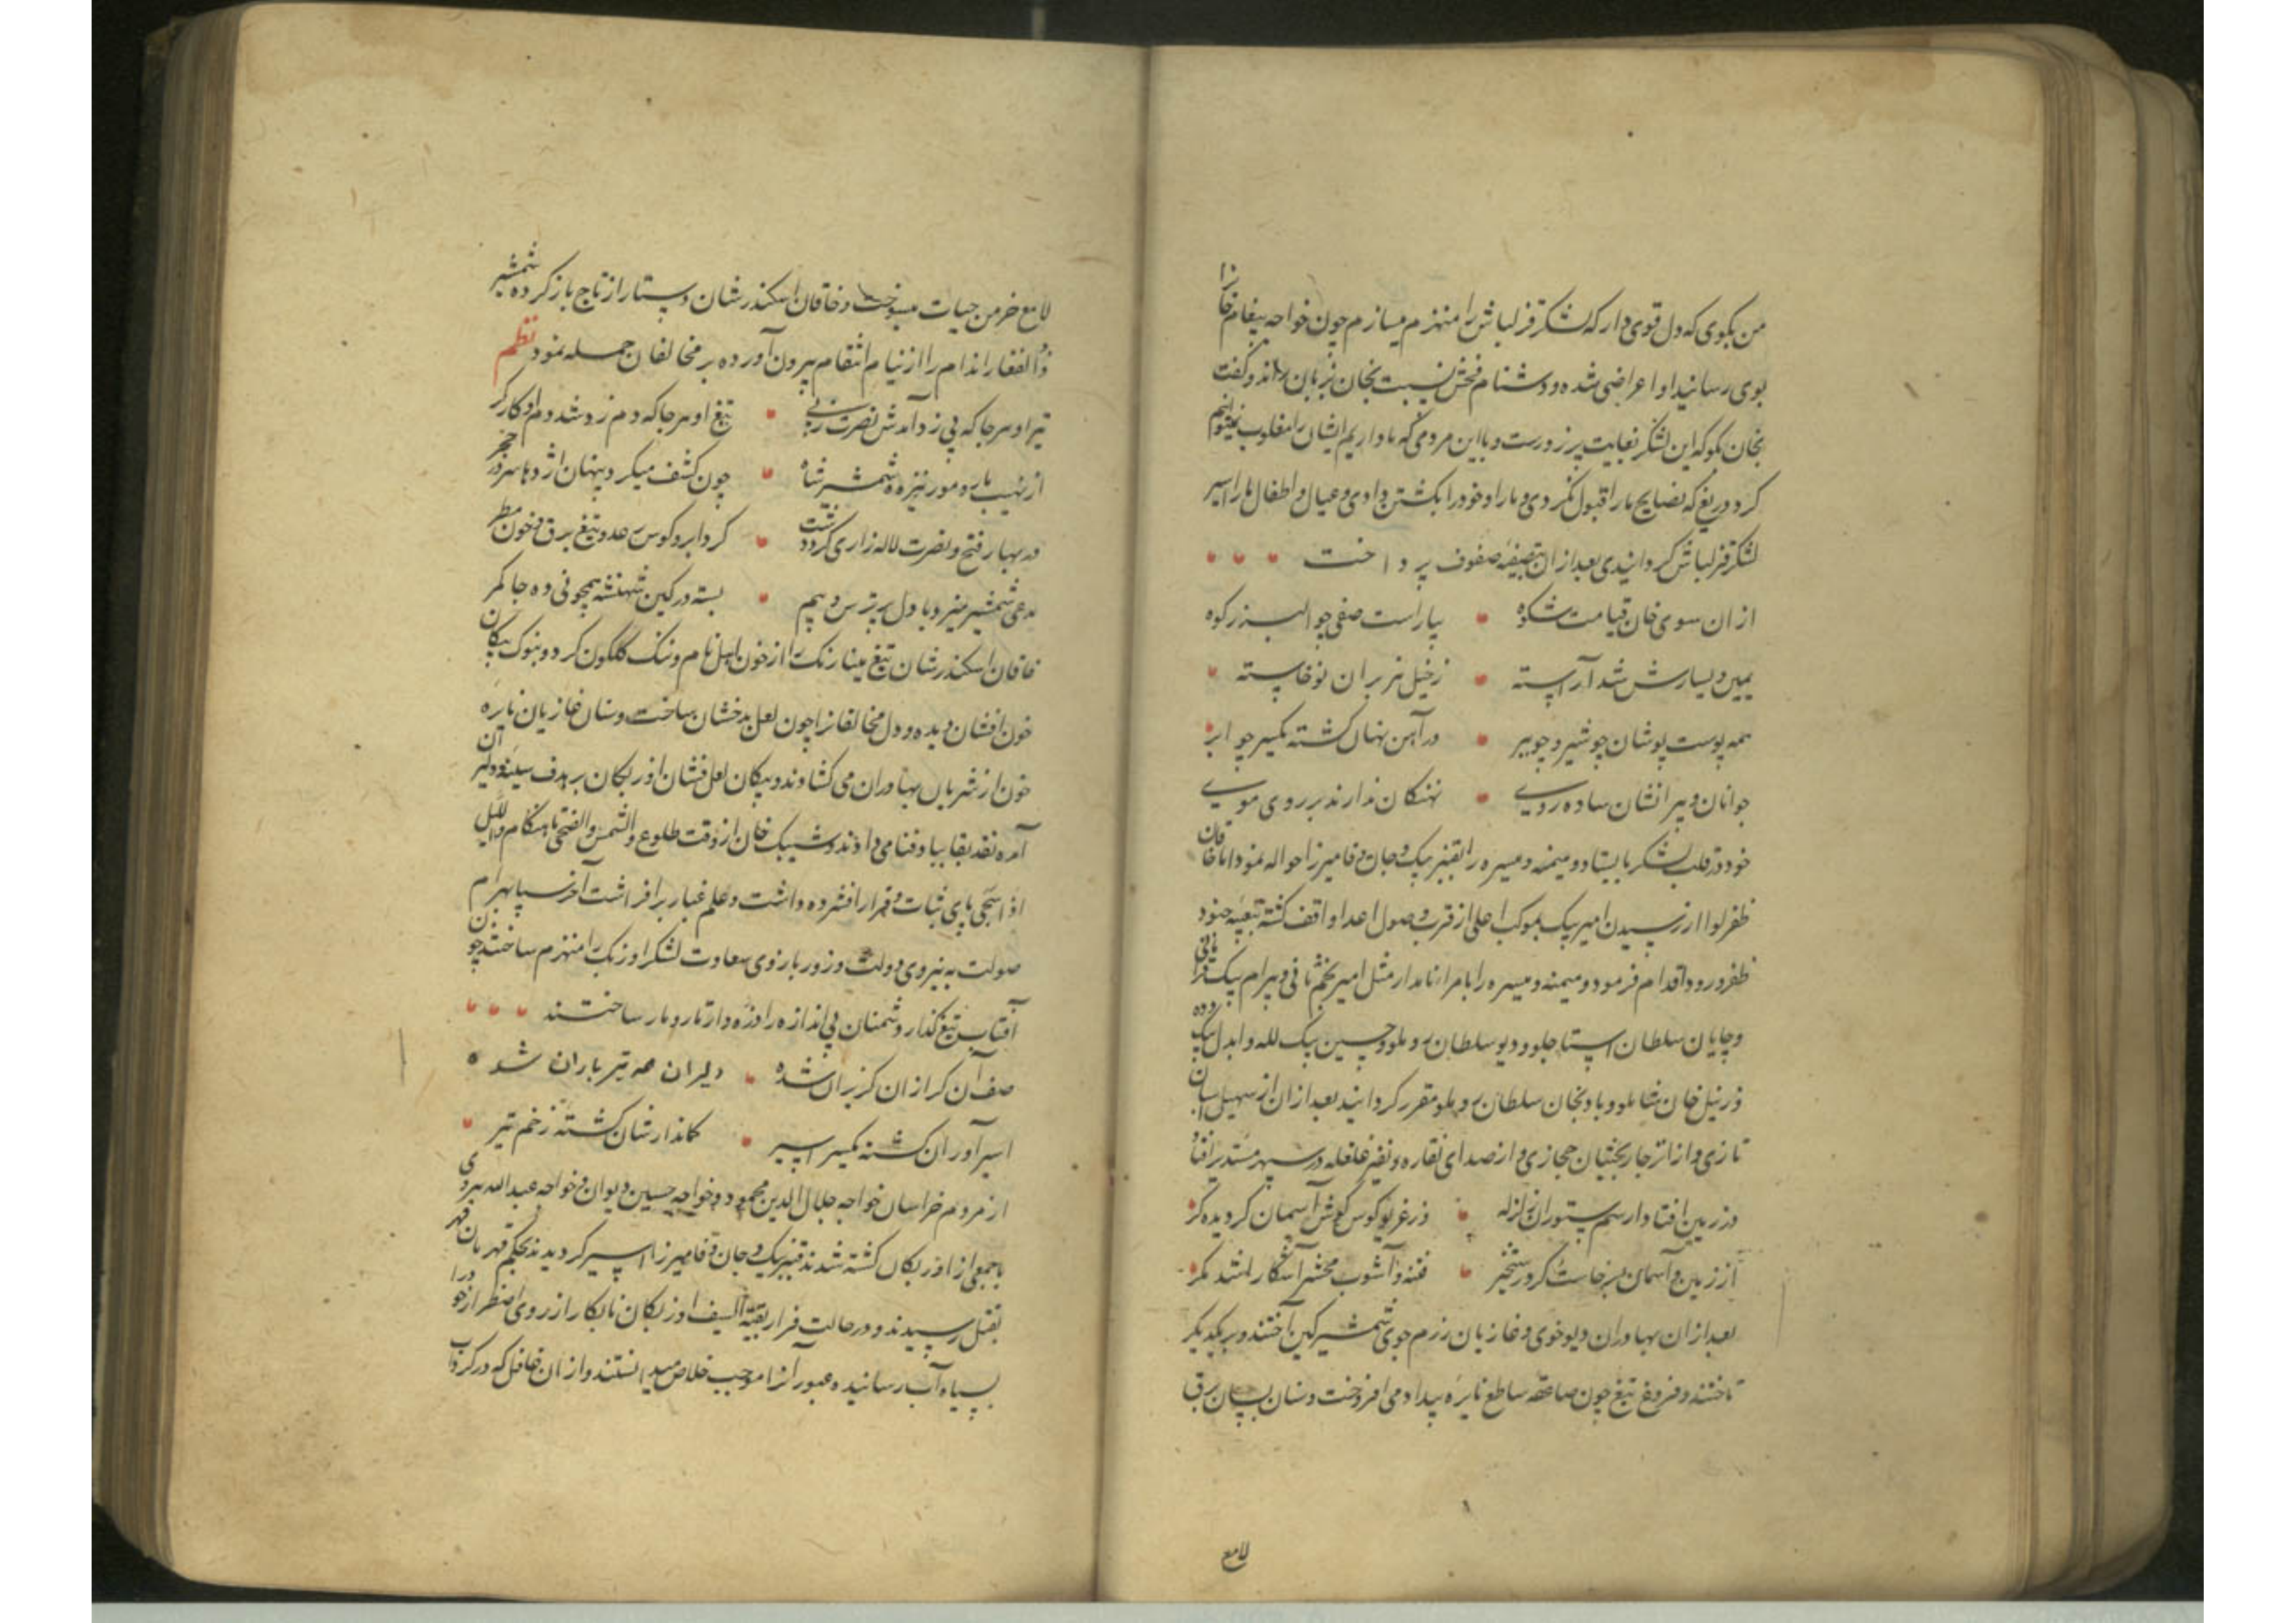 من بکوی که دل قوی دار که لشکر قزلباش را منهزم میسازم چون خواجه پیغام خانرا
بوی رسانید او اعراضی شده و دشنام فحش نسبت بخان بزبان راند و گفت
بخان بکو که این لشکر بغایت پر زورست و با این مردمی که ما داریم ایشان را مغلوب نمیتوانیم
کرد دریغ که نصایح ما را قبول نکردی و ما را و خود را بکشتن دادی و عیال و اطفال ما را اسیر
لشکر قزلباش کردانیدی بعد از ان بتصفیه صفوف پرداخت
از ان سوی خان قیامت شکوه بیاراست صفی چو البرز کوه
یمین و یسارش شد آراسته ز خیل هزبران نوخاسته
همه پوست پوشان چو شیر و چو ببر در آهن نهان کشته یکسر چو ابر
جوانان و پیرانشان ساده روی نهنکان ندارند بر روی موی
خود در قلب لشکر بایستاد و میمنه و میسره را بقنبر بیک و جان وفا میرزا حواله نمود اما خاقان
ظفر لوا از رسیدن امیر بیک بموکب اعلی از قرب وصول اعدا واقف کشته بتعبیه جنود
ظفر ورود اقدام فرمود و میمنه و میسره را بامراء نامدار مثل امیر نجم ثانی و بیرام بیک قرامانی
و چایان سلطان استاجلو و دیو سلطان روملو و حسین بیک لله و ابدال بیک دده
و زینل خان شاملو و بادنجان سلطان روملو مقرر کردانید بعد از ان از سهیل اسبان
تازی و از اثر جار بختیان حجازی و از صدای نقاره و نفیر غلغله در سپهر مستدیر افتاد
در زمین افتاد از سم ستوران زلزله وز غریو کوس کوش آسمان کردیده کر
از زمین و آسمان برخاست کرد رستخیز فتنه و آشوب محشر آشکارا شد مکر
بعد از ان بهادران دیوخوی و غازیان رزم جوی شمشیر کین آختند و بر یکدیکر
تاختند و فروغ تیغ چون صاعقه ساطع نایره بیداد می افروخت و سنان بسان برق
لامع
لامع خرمن حیات میسوخت و خاقان اسکندر شان دستار از تاج باز کرده شمشیر
ذو الفقار اندام را از نیام انتقام بیرون آورده بر مخالفان حمله نمود نظم
تیر او هر جا که پی زد آمدش نصرت ز پی تیغ او هر جا که دم زد شد دم او کارکر
از نهیب مار و مور نیزه و شمشیر شاه چون کشف میکرد پنهان اژدها سر در حجر
در بهار فتح و نصرت لاله زاری کرد دشت کرد ابر و کوس رعد و تیغ برق و خون مطر
مدعی شمشیر میزد با دل پر ترس و بیم بسته در کین شهنشه همچو نی ده جا کمر
خاقان اسکندر شان تیغ مینا رنک را از خون اهل نام و ننک کلکون کرد و بنوک پیکان
خون افشان دیده و دل مخالفانرا چون لعل بدخشان ساخت و سنان غازیان نایره
خون از شریان بهادران می کشادند و پیکان لعل فشان اوزبکان بر هدف سینه دلیران
آمده نقد بقا بباد فنا می دادند و شیبک خان از وقت طلوع والشمس والضحی تا هنکام واللیل
اذا سجی پای ثبات و قرار افشرده داشت و علم غبار بر افراشت آخر سپاه بهرام
صولت به نیروی دولت و زور بازوی سعادت لشکر اوزبک را منهزم ساختند چون
آفتاب تیغ کذار دشمنان بی اندازه را ذره وار تار و مار ساختند
صف آن کرازان کریزان شده دلیران همه تیر باران شده
اسیرآوران کشته یکسر اسیر کماندارشان کشته زخم تیر
از مردم خراسان خواجه جلال الدین محمود و خواجه حسین دیوان و خواجه عبد الله مروی
با جمعی از اوزبکان کشته شدند قنبر بیک و جان وفا میرزا اسیر کردیدند بحکم قهرمان قهر
بقتل رسیدند و در حالت فرار بقیة السیف اوزبکان نابکار از روی اضطرار خود را
بسیاه آب رسانیده عبور آنرا موجب خلاص میدانستند و از ان غافل که در کرداب